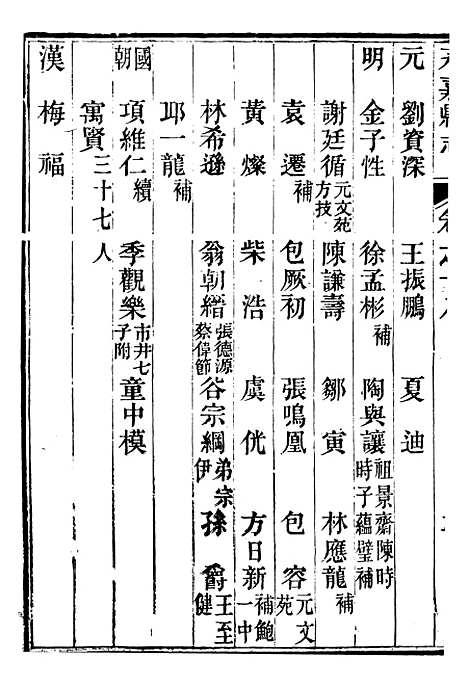 永嘉縣志 卷
元 劉資深 王振鵬 夏迪
明 金子性 徐孟彬補 陶與讓祖景齋陳時時子蘊璧補
謝廷循元文苑方技 陳謙壽 鄒寅 林應龍補
袁遷補 包厥初 張鳴凰 包容元文苑
黃燦 柴浩 虞侊 方日新補鮑一中
林希遜 翁朝縉張德源蔡偉節 谷宗綱弟宗伊 孫爵王至健
邱一龍補
國朝 項維仁續 季觀樂市井七子附 童中模
寓賢三十七人
漢 梅福